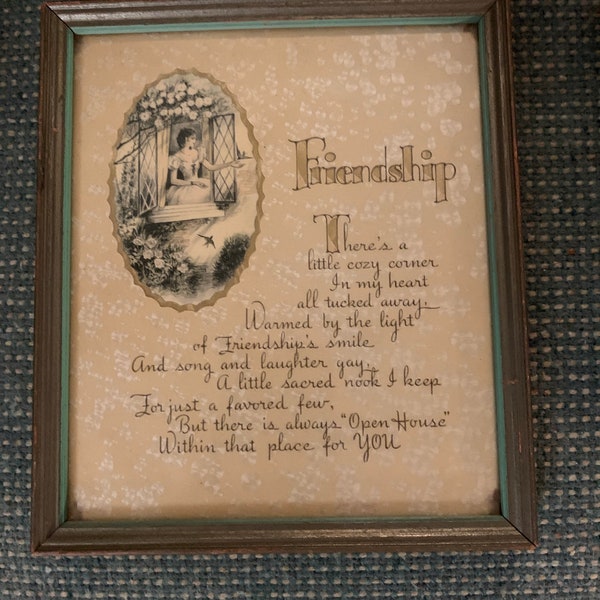 Friendship
There's a
little cozy corner
In my heart
all tucked away,
Warmed by the light
of Friendship's smile
And song and laughter gay.
A little sacred nook I keep
For just a favored few,
But there is always "Open House"
Within that place for YOU